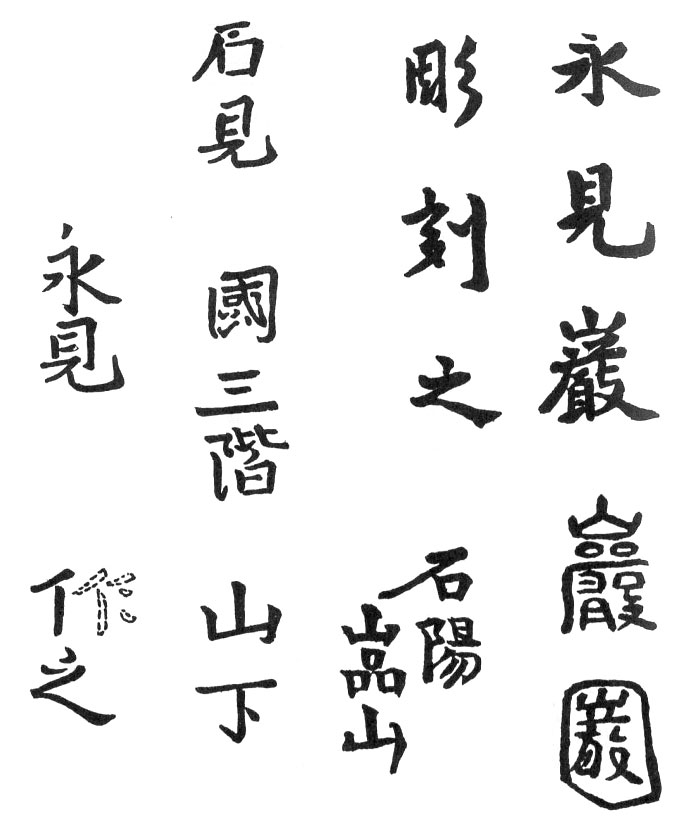 永見巌 巖 巌
彫刻之
石陽
嵒山
石見國三階山下
永見作之